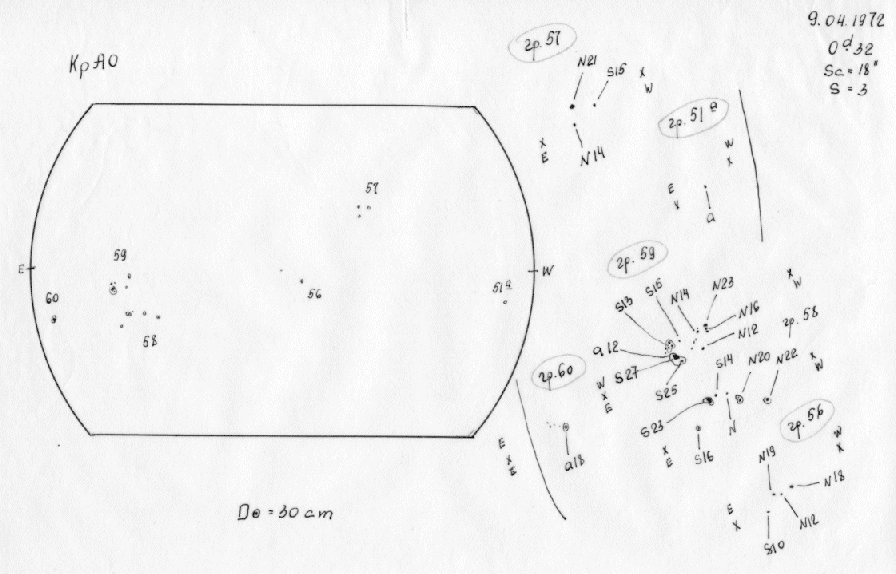 9.04.1972
0ᵈ.32
Sc = 18"
S = 3
КрАО
E
W
57
59
60
58
56
51а
D⊙ = 30 cm
гр. 57
N21
S15
X
W
X
E
N14
гр. 51а
W
X
E
X
a
гр. 59
S13
S15
N14
N23
N16
N12
a12
S27
S25
X
W
W
X
E
гр. 58
S14
N20
N22
X
W
S23
N
S16
X
E
гр. 60
a18
E
X
X
E
гр. 56
W
X
N19
N18
N12
S10
E
X